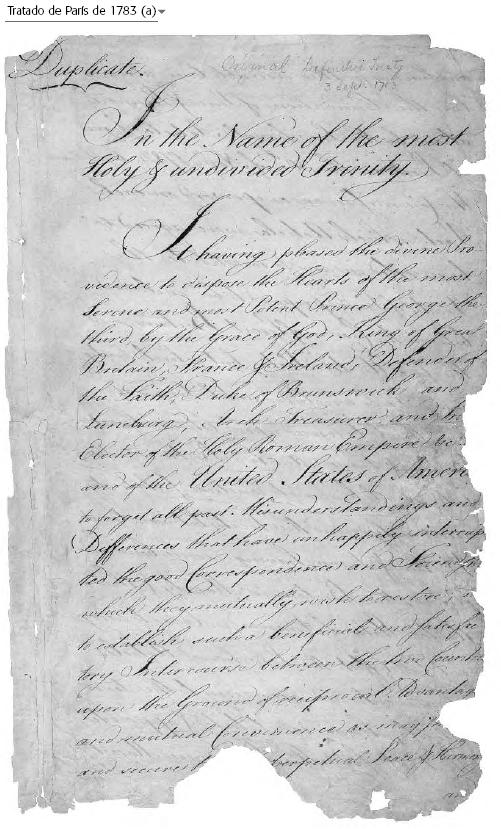 Tratado de París de 1783 (a)
Duplicate.
Original Definitive Treaty
3 Sept. 1783
In the Name of the most
Holy & undivided Trinity.
It having pleased the divine Pro-
vidence to dispose the Hearts of the most
Serene and most Potent Prince George the
third, by the Grace of God, King of Great
Britain, France & Ireland, Defender of
the Faith, Duke of Brunswick and
Luneburg, Arch Treasurer and
Elector of the Holy Roman Empire &c
and of the United States of Ameri
to forget all past Misunderstandings and
Differences that have unhappily interrup
ted the good Correspondence and
which they mutually wish to restore;
to establish such a beneficial and satisfac
tory Intercourse between the two Count
upon the Ground of reciprocal Advantag
and mutual Convenience as may
and secure perpetual Peace & Harmo
an